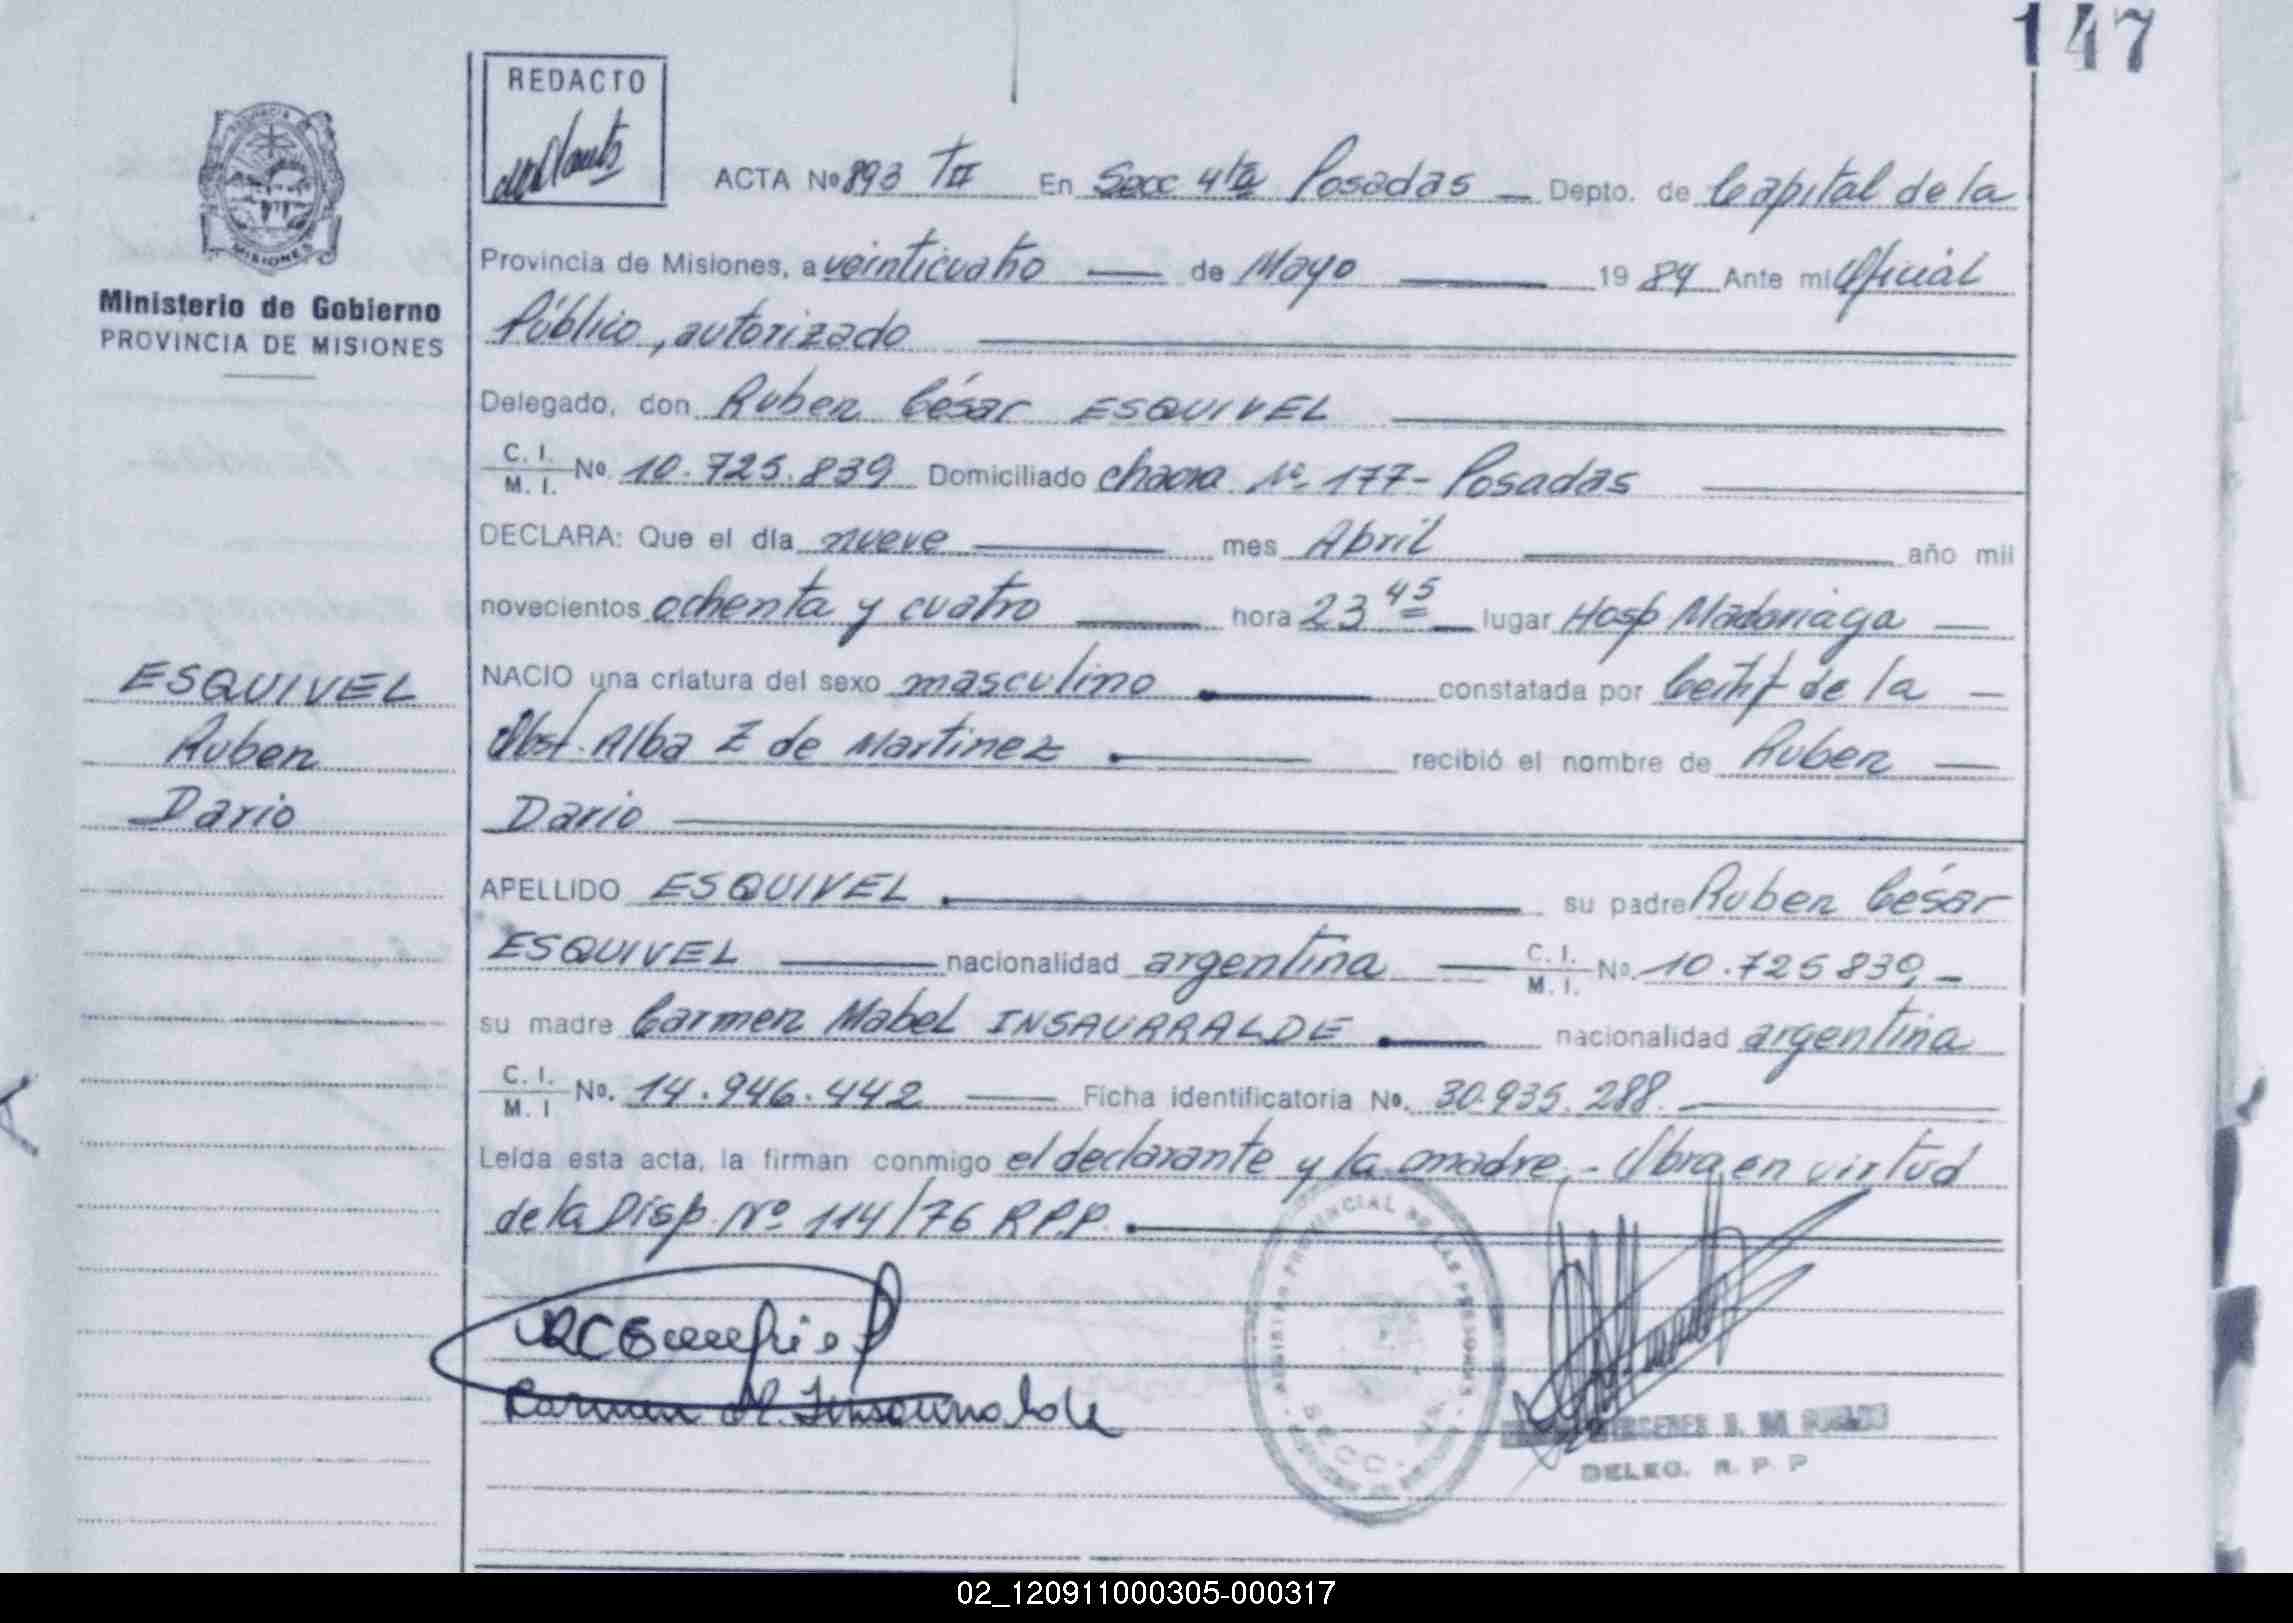 147
REDACTO
ACTA Nº 893 TII En Secc 4ta Posadas — Depto. de Capital de la
Provincia de Misiones, a veinticuatro — de Mayo — 1984 Ante mi Oficial
Público, autorizado
Delegado, don Ruben César ESQUIVEL
C. I.
M. I. Nº 10.725.839 Domiciliado chacra Nº 177 - Posadas
DECLARA: Que el día nueve — mes Abril — año mil
novecientos ochenta y cuatro — hora 23 45 — lugar Hosp Madariaga —
NACIO una criatura del sexo masculino — constatada por Certif de la —
Obst. Alba Z de Martinez — recibió el nombre de Ruben —
Dario
APELLIDO ESQUIVEL — su padre Ruben César
ESQUIVEL — nacionalidad argentina — C. I.
M. I. Nº. 10.725839,-
su madre Carmen Mabel INSAURRALDE — nacionalidad argentina
C. I.
M. I Nº. 14.946.442 — Ficha identificatoria Nº. 30.935.288.
Leída esta acta, la firman conmigo el declarante y la madre.- Obra en virtud
de la Disp. Nº 114/76 R.P.P.
Ministerio de Gobierno
PROVINCIA DE MISIONES
MISIONES
ESQUIVEL
Ruben
Dario
Carmen M. Insaurralde
PROVINCIAL DE LAS PERSONAS
SECC.
DELEG. R. P. P
02_120911000305-000317